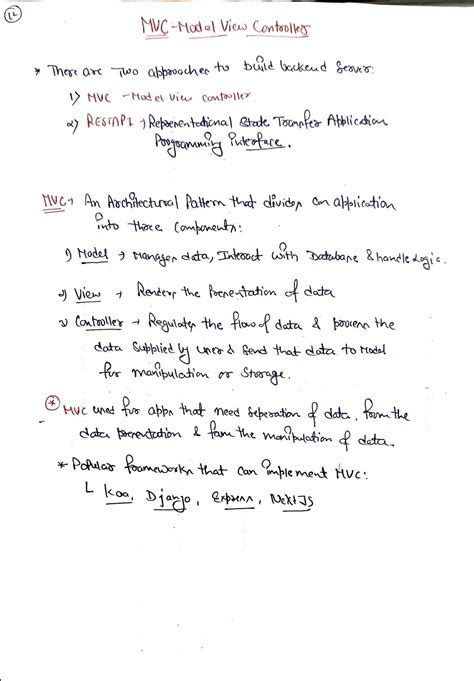 12
MVC - Model View Controller
* There are Two approaches to build backend Server:
1) MVC - Model View Controller
2) RESTAPI → Representational State Transfer Application
Programming Interface.
MVC → An Architectural Pattern that divides an application
into three Components:
1) Model → Manages data, Interact with Database & handle Logic.
2) View → Renders the Presentation of data
3) Controller → Regulates the flow of data & process the
data Supplied by user & Send that data to Model
for manipulation or Storage.
* MVC used for apps that need seperation of data, from the
data presentation & from the manipulation of data.
* Popular frameworks that can implement MVC:
Koa, Django, Express, NextJS